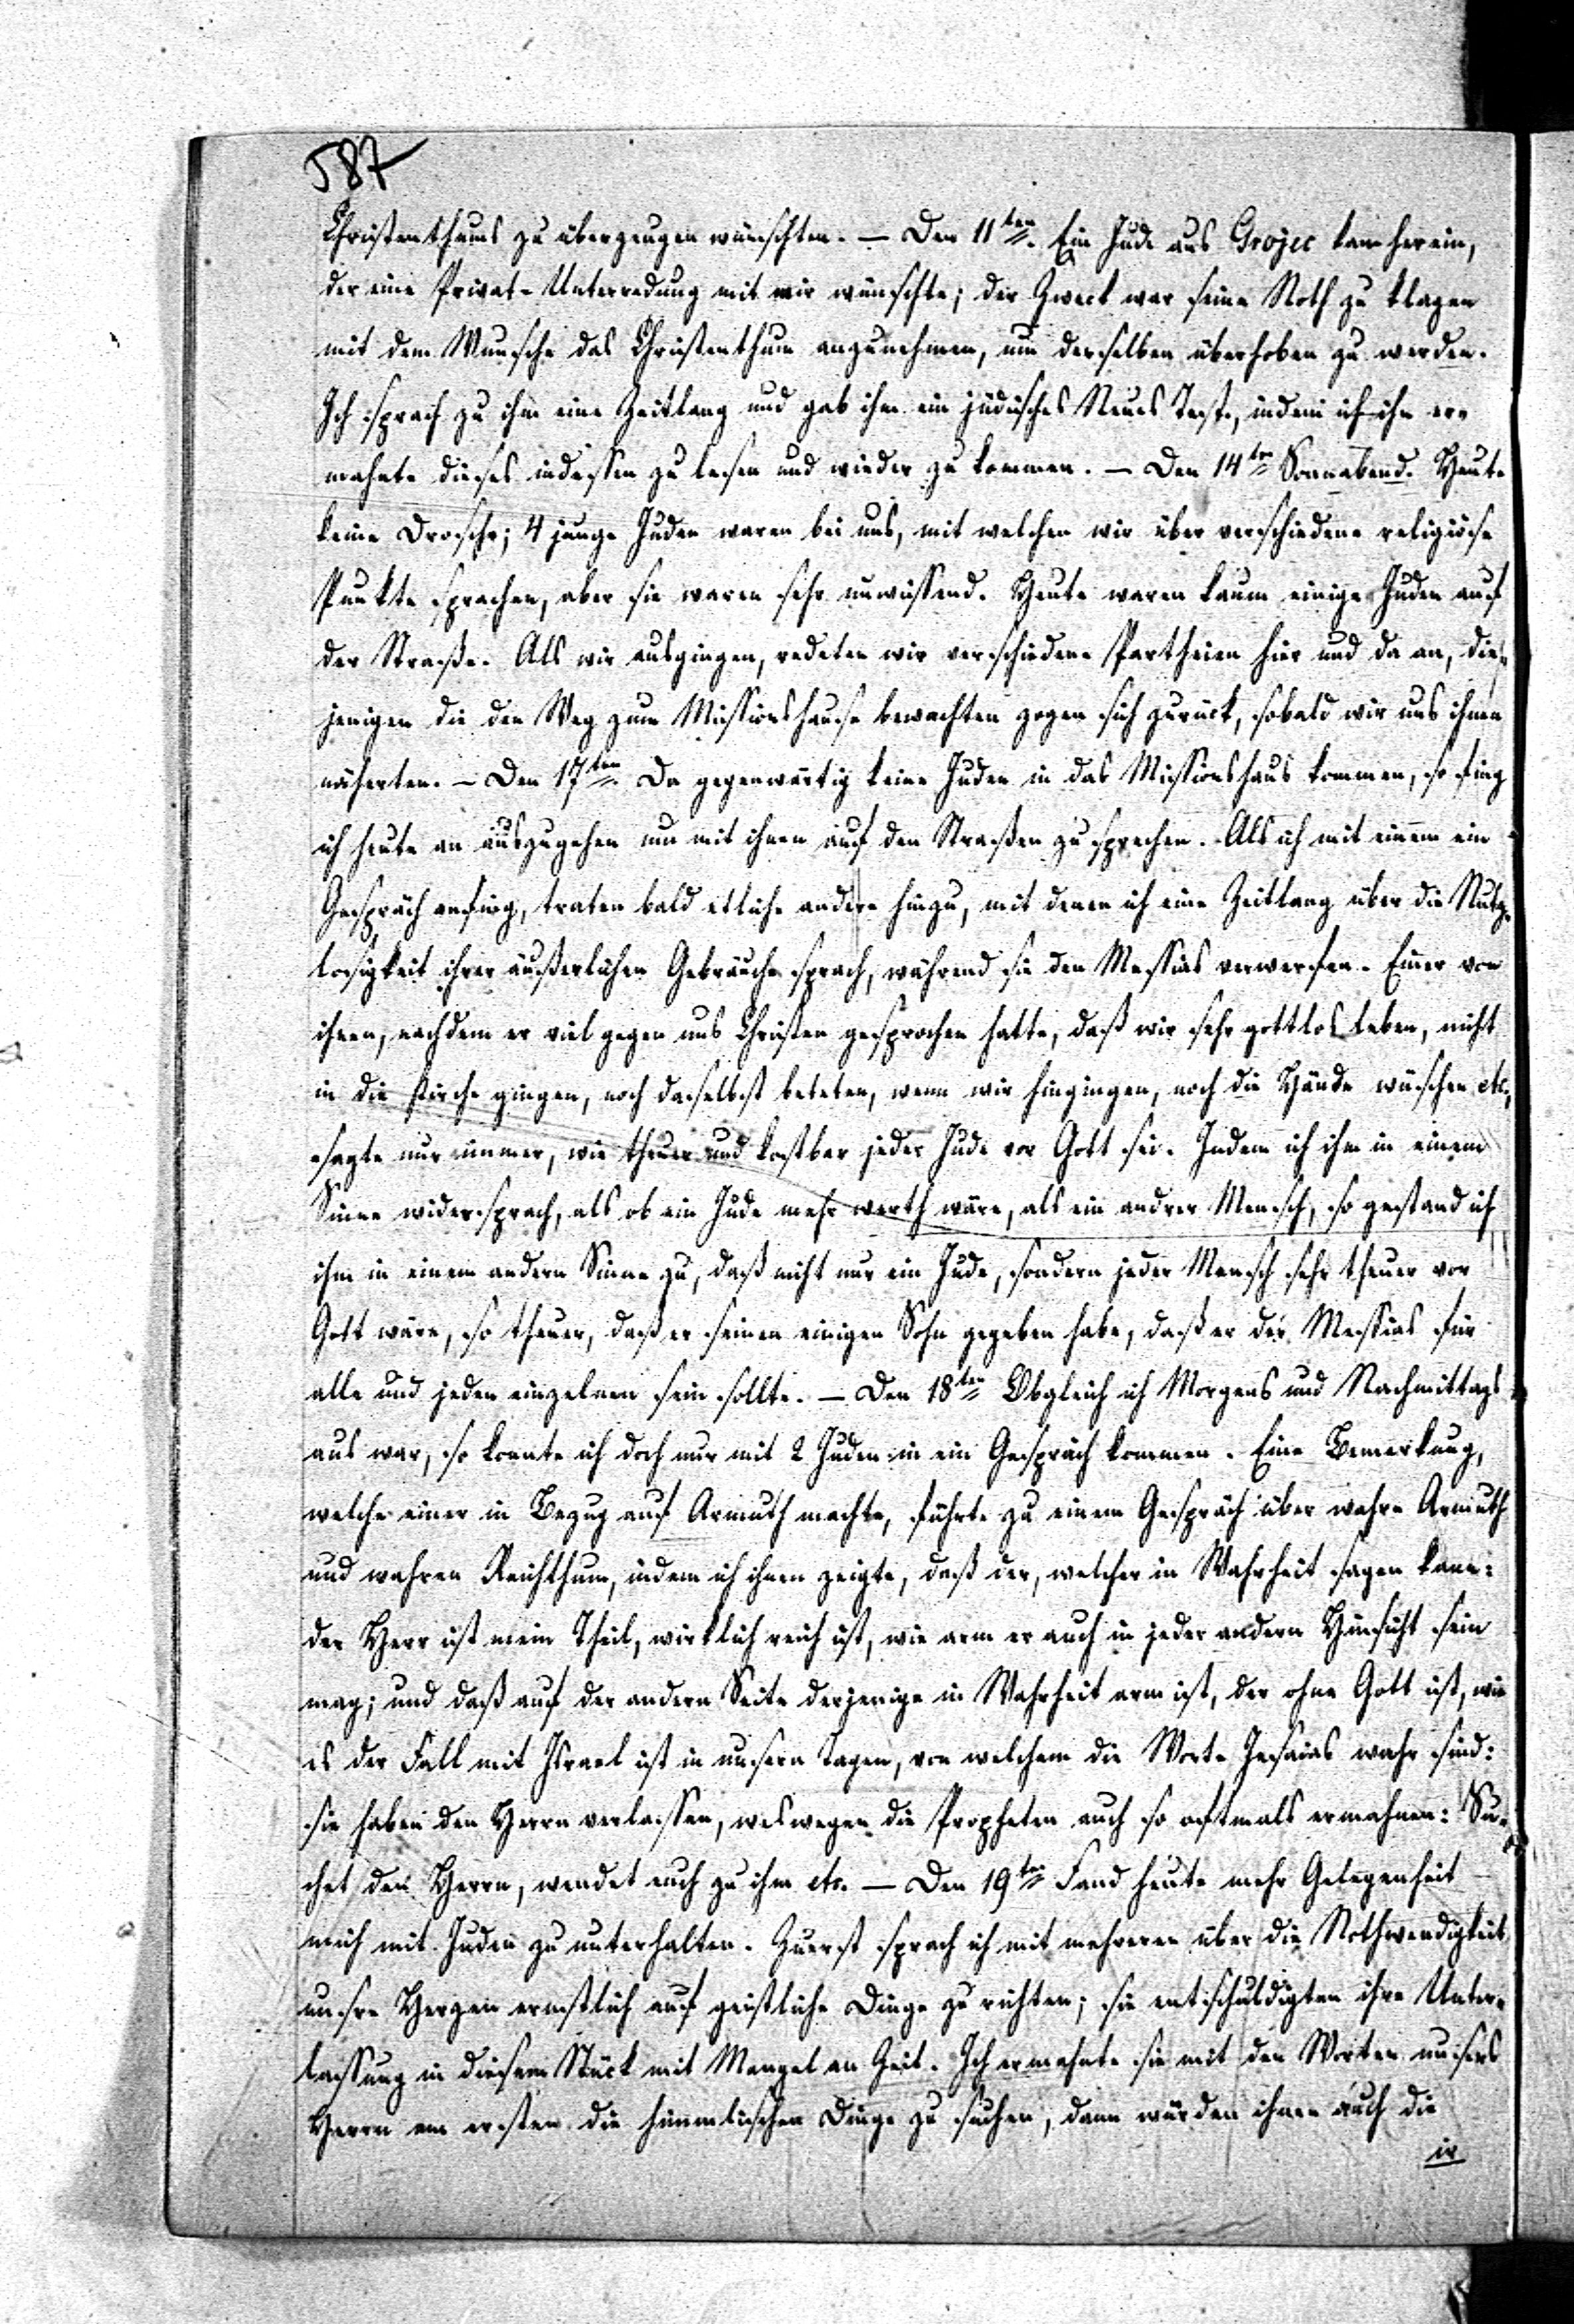 587
Christenthums zu überzeugen wünschten. — Den 11ten. Ein Jude aus Grojec kam herein,
der eine Privat-Unterredung mit mir wünschte; der Zweck war seine Noth zu klagen
mit dem Wunsche das Christenthum anzunehmen, um derselben überhoben zu werden.
Ich sprach zu ihm eine Zeitlang und gab ihm ein jüdisches Neues Test., indem ich ihn er-
mahnte dieses indessen zu lesen und wieder zu kommen. — Den 14ten Sonnabend. Heute
keine Drosche; 4 junge Juden waren bei uns, mit welchen wir über verschiedene religiöse
Punkte sprachen, aber sie waren sehr unwissend. Heute waren kaum einige Juden auf
der Straße. Als wir ausgingen, redeten wir verschiedene Partheien hier und da an, die-
jenigen die den Weg zum Missionshause bewachten zogen sich zurück, sobald wir uns ihnen
näherten. — Den 17ten. Da gegenwärtig keine Juden in das Missionshaus kommen, so fing
ich heute an auszugehen um mit ihnen auf den Straßen zu sprechen. Als ich mit einem ein
Gespräch anfing, traten bald etliche andere hinzu, mit denen ich eine Zeitlang über die Nutz-
losigkeit ihrer äußerlichen Gebräuche sprach, während sie den Messias verwerfen. Einer von
ihnen, nachdem er viel gegen uns Christen gesprochen hatte, daß wir sehr gottlos leben, nicht
in die Kirche gingen, noch daselbst beteten, wenn wir hingingen, noch die Hände wüschen etc.,
sagte nur immer, wie theuer und kostbar jeder Jude vor Gott sei. Indem ich ihm in einem
Sinne widersprach, als ob ein Jude mehr werth wäre, als ein andrer Mensch, so gestand ich
ihm in einem andern Sinne zu, daß nicht nur ein Jude, sondern jeder Mensch sehr theuer vor
Gott wäre, so theuer, daß er seinen einigen Sohn gegeben habe, daß er der Messias für
alle und jeden einzelnen sein sollte. — Den 18ten Obgleich ich Morgens und Nachmittags
aus war, so konnte ich doch nur mit 2 Juden in ein Gespräch kommen. Eine Bemerkung,
welche einer in Bezug auf Armuth machte, führte zu einem Gespräch über wahre Armuth
und wahren Reichthum, indem ich ihnen zeigte, daß der, welcher in Wahrheit sagen kann:
der Herr ist mein Theil, wirklich reich ist, wie arm er auch in jeder andern Hinsicht sein
mag; und daß auf der andern Seite derjenige in Wahrheit arm ist, der ohne Gott ist, wie
es der Fall mit Israel ist in unsern Tagen, von welchem die Worte Jesaias wahr sind:
sie haben den Herrn verlassen, weswegen die Propheten auch so oftmals ermahnen: Su-
chet den Herrn, wendet euch zu ihm etc. — Den 19ten Fand heute mehr Gelegenheit
mich mit Juden zu unterhalten. Zuerst sprach ich mit mehreren über die Nothwendigkeit
unsre Herzen ernstlich auf geistliche Dinge zu richten; sie entschuldigten ihre Unter-
lassung in diesem Stück mit Mangel an Zeit. Ich ermahnte sie mit den Worten unsers
Herrn am ersten die himmlischen Dinge zu suchen, dann würden ihnen auch die
ir